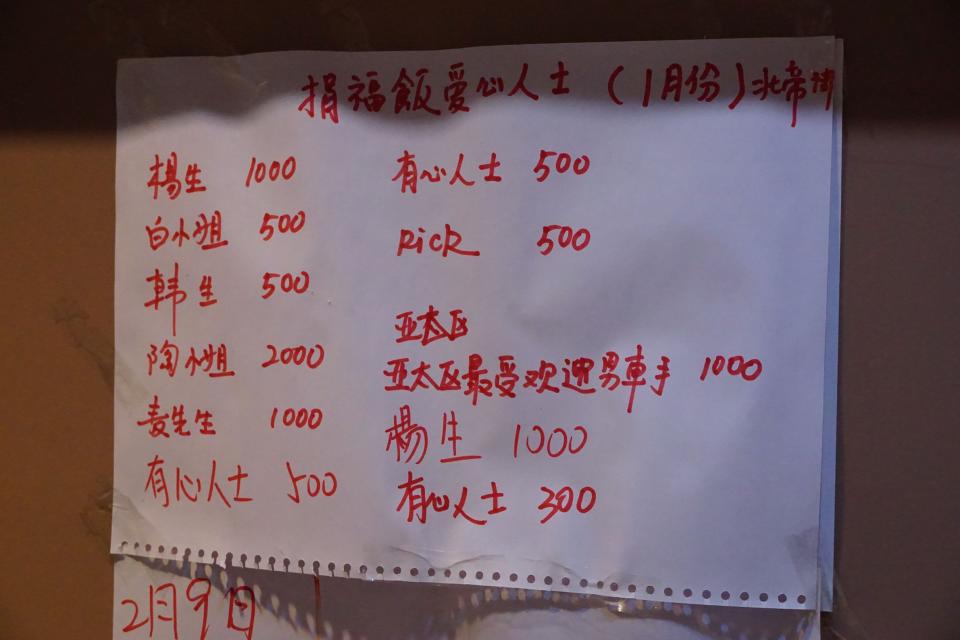 捐福飯爱心人士 (1月份) 北帝街
楊生 1000
白小姐 500
韩生 500
陶小姐 2000
麦先生 1000
有心人士 500
有心人士 500
RicR 500
亚太区
亚太区最受欢迎男車手 1000
楊生 1000
有心人士 300
2月9日